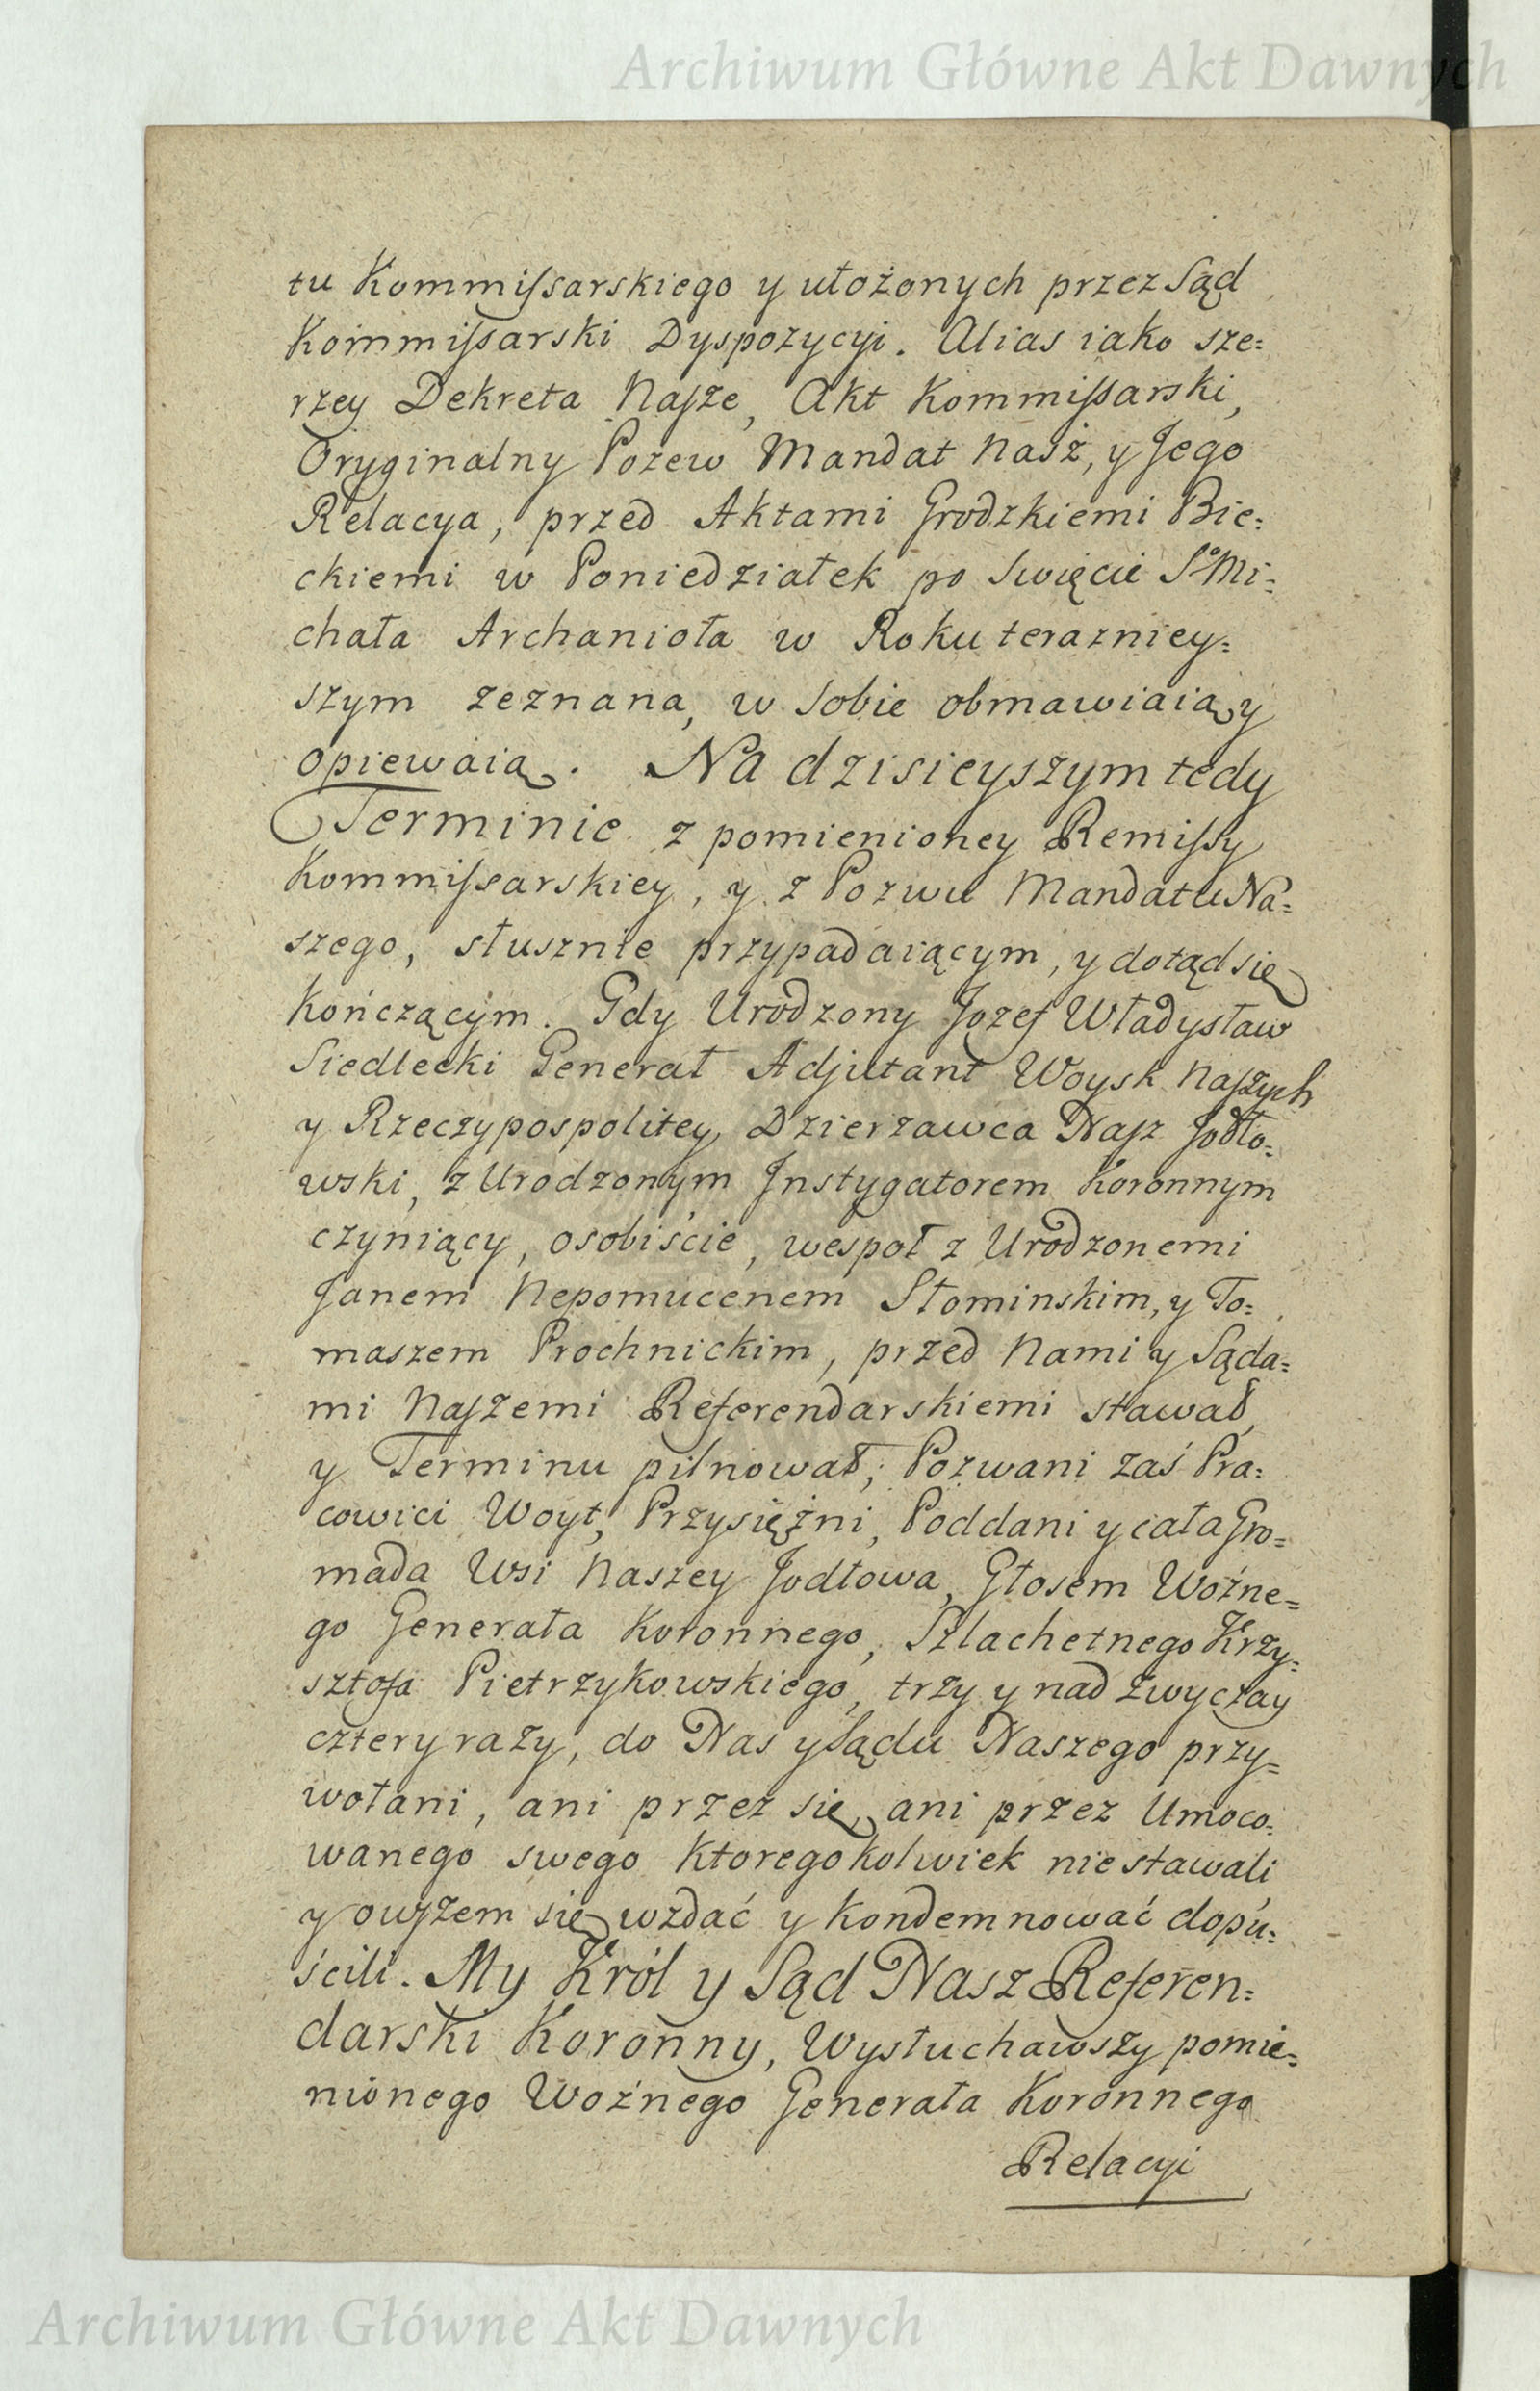 Archiwum Główne Akt Dawnych
tu Kommissarskiego y ułożonych przez Sąd
Kommissarski Dyspozycyi. Alias iako sze=
rzey Dekreta Nasze, Akt Kommissarski,
Oryginalny Pozew Mandat Nasz, y Jego
Relacya, przed Aktami Grodzkiemi Bie=
ckiemi w Poniedziałek po Swięcie So Mi=
chała Archanioła w Roku terazniey=
szym zeznana, w sobie obmawiaią y
opiewaią. Na dzisieyszym tedy
Terminie z pomienioney Remissy
Kommissarskiey, y z Pozwu Mandatu Na=
szego, słusznie przypadaiącym, y dotąd się
Kończącym. Gdy Urodzony Jozef Władysław
Siedlecki Generał Adjutant Woysk Naszych
y Rzeczypospolitey, Dzierzawca Nasz Jodło=
wski, z Urodzonym Jnstygatorem Koronnym
czyniący, osobiście, wespoł z Urodzonemi
Janem Nepomucenem Słominskim, y To=
maszem Prochnickim, przed Nami y Sąda=
mi Naszemi Referendarskiemi stawał,
y Terminu pilnował; Pozwani zaś Pra=
cowici Woyt, Przysiężni, Poddani y cała Gro=
mada Wsi Naszey Jodłowa, Głosem Woźne=
go Generała Koronnego, Szlachetnego Krzy=
sztofa Pietrzykowskiego, trzy y nad zwyczay
cztery razy, do Nas y Sądu Naszego przy=
wołani, ani przez się, ani przez Umoco=
wanego swego Ktoregokolwiek nie stawali,
y owszem się wzdać y Kondemnować dopu=
ścili. My Król y Sąd Nasz Referen=
darski Koronny, Wysłuchawszy pomie=
nionego Woźnego Generała Koronnego
Relacyi
Archiwum Główne Akt Dawnych